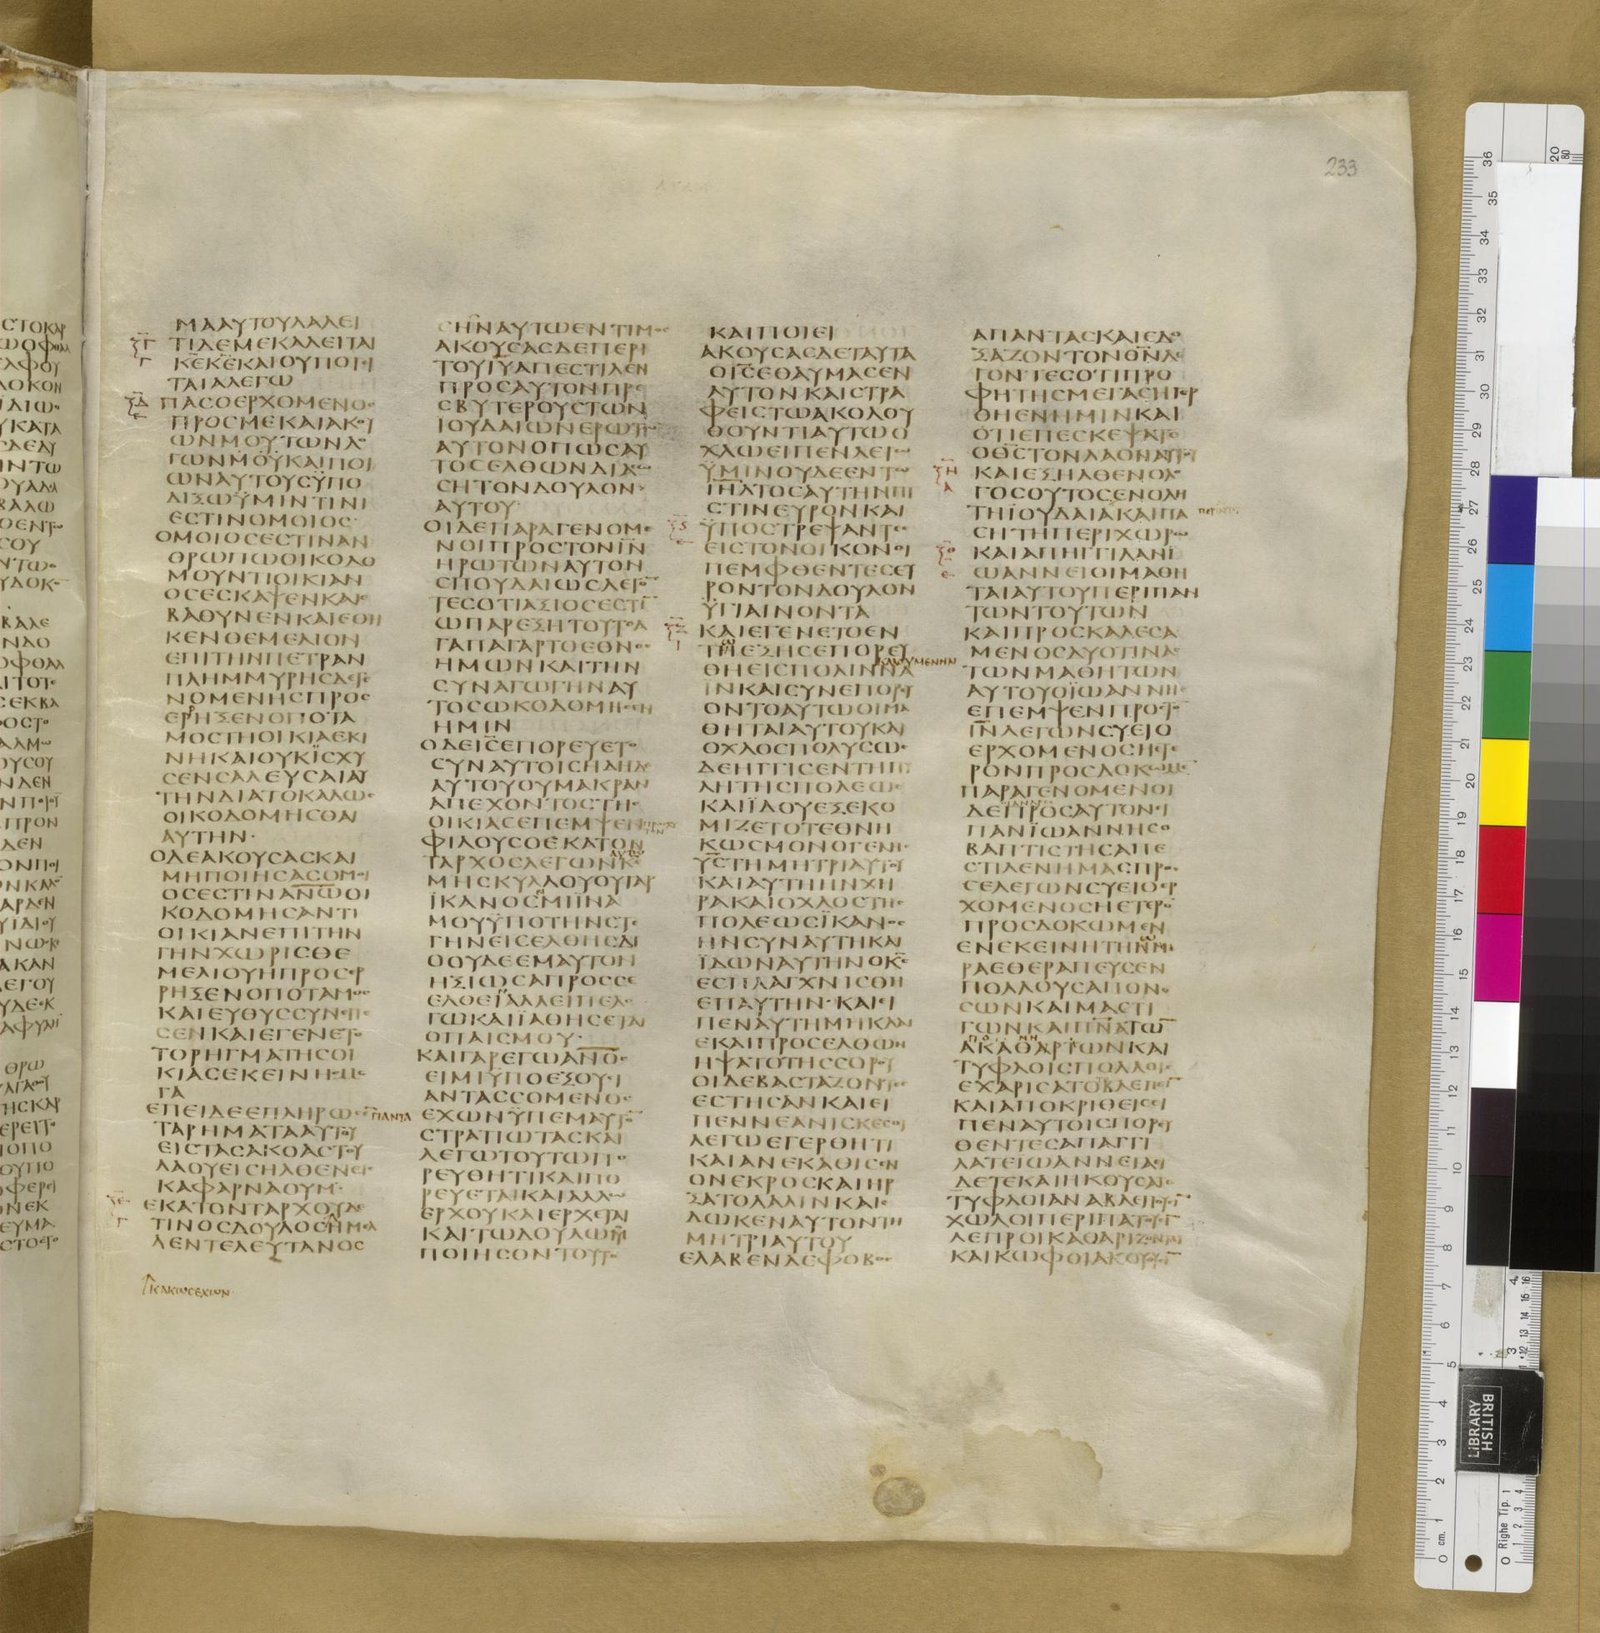 233
ΜΑΑΥΤΟΥΛΑΛΕΙ
ΤΙΔΕΜΕΚΑΛΕΙΤΑΙ
ΚΕΚΕΚΑΙΟΥΠΟΙΕΙ
ΤΑΙΑΛΕΓΩ
ΠΑΣΟΕΡΧΟΜΕΝΟΣ
ΠΡΟΣΜΕΚΑΙΑΚΟΥ
ΩΝΜΟΥΤΩΝΛΟ
ΓΩΝΜΟΥΚΑΙΠΟΙ
ΩΝΑΥΤΟΥΣΥΠΟ
ΔΙΞΩΫΜΙΝΤΙΝΙ
ΕΣΤΙΝΟΜΟΙΟΣ
ΟΜΟΙΟΣΕΣΤΙΝΑΝ
ΘΡΩΠΩΟΙΚΟΔΟ
ΜΟΥΝΤΙΟΙΚΙΑΝ
ΟΣΕΣΚΑΨΕΝΚΑΙΕ
ΒΑΘΥΝΕΝΚΑΙΕΘΗ
ΚΕΝΘΕΜΕΛΙΟΝ
ΕΠΙΤΗΝΠΕΤΡΑΝ
ΠΛΗΜΜΥΡΗΣΔΕΓΕ
ΝΟΜΕΝΗΣΠΡΟΣ
ΕΡΗΞΕΝΟΠΟΤΑ
ΜΟΣΤΗΟΙΚΙΑΕΚΙ
ΝΗΚΑΙΟΥΚΪΣΧΥ
ΣΕΝΣΑΛΕΥΣΑΙΑΥ
ΤΗΝΔΙΑΤΟΚΑΛΩΣ
ΟΙΚΟΔΟΜΗΣΘΑΙ
ΑΥΤΗΝ·
ΟΔΕΑΚΟΥΣΑΣΚΑΙ
ΜΗΠΟΙΗΣΑΣΟΜΟΙ
ΟΣΕΣΤΙΝΑΝΩΟΙ
ΚΟΔΟΜΗΣΑΝΤΙ
ΟΙΚΙΑΝΕΠΙΤΗΝ
ΓΗΝΧΩΡΙΣΘΕ
ΜΕΛΙΟΥΗΠΡΟΣΕΡ
ΡΗΞΕΝΟΠΟΤΑΜΟΣ
ΚΑΙΕΥΘΥΣΣΥΝΕΠΕ
ΣΕΝΚΑΙΕΓΕΝΕΤΟ
ΤΟΡΗΓΜΑΤΗΣΟΙ
ΚΙΑΣΕΚΕΙΝΗΣΜΕ
ΓΑ
ΕΠΕΙΔΕΕΠΛΗΡΩΣΕ ΠΑΝΤΑ
ΤΑΡΗΜΑΤΑΑΥΤΟΥ
ΕΙΣΤΑΣΑΚΟΑΣΤΟΥ
ΛΑΟΥΕΙΣΗΛΘΕΝΕΙΣ
ΚΑΦΑΡΝΑΟΥΜ·
ΕΚΑΤΟΝΤΑΡΧΟΥΔΕ
ΤΙΝΟΣΔΟΥΛΟΣΗΜΕΛ
ΛΕΝΤΕΛΕΥΤΑΝΟΣ
ΚΑΚΩΣΕΧΩΝ
ΣΗΝΑΥΤΩΕΝΤΙΜΟΣ
ΑΚΟΥΣΑΣΔΕΠΕΡΙ
ΤΟΥΙΥΑΠΕΣΤΙΛΕΝ
ΠΡΟΣΑΥΤΟΝΠΡΕ
ΣΒΥΤΕΡΟΥΣΤΩΝ
ΙΟΥΔΑΙΩΝΕΡΩΤΩ
ΑΥΤΟΝΟΠΩΣΑΥ
ΤΟΣΕΛΘΩΝΔΙΑΣΩ
ΣΗΤΟΝΔΟΥΛΟΝ
ΑΥΤΟΥ·
ΟΙΔΕΠΑΡΑΓΕΝΟΜΕ
ΝΟΙΠΡΟΣΤΟΝΙΝ
ΗΡΩΤΩΝΑΥΤΟΝ
ΣΠΟΥΔΑΙΩΣΛΕΓΟ
ΤΕΣΟΤΙΑΞΙΟΣΕΣΤΙ
ΩΠΑΡΕΞΗΤΟΥΤΟΑ
ΓΑΠΑΓΑΡΤΟΕΘΝΟΣ
ΗΜΩΝΚΑΙΤΗΝ
ΣΥΝΑΓΩΓΗΝΑΥ
ΤΟΣΩΚΟΔΟΜΗΣΕΝ
ΗΜΙΝ
ΟΔΕΙΣΕΠΟΡΕΥΕΤΟ
ΣΥΝΑΥΤΟΙΣΗΔΗΔΕ
ΑΥΤΟΥΟΥΜΑΚΡΑΝ
ΑΠΕΧΟΝΤΟΣΤΗΣ
ΟΙΚΙΑΣΕΠΕΜΨΕΝ
ΦΙΛΟΥΣΟΕΚΑΤΟΝ
ΤΑΡΧΟΣΛΕΓΩΝΚΕ
ΜΗΣΚΥΛΛΟΥΟΥΓΑΡ
ΪΚΑΝΟΣΜΙΪΝΑ
ΜΟΥΫΠΟΤΗΝΣΤΕ
ΓΗΝΕΙΣΕΛΘΗΣΔΙ
ΟΟΥΔΕΕΜΑΥΤΟΝ
ΗΞΙΩΣΑΠΡΟΣΣΕ
ΕΛΘΕΙΑΛΛΕΙΠΕΛΟ
ΓΩΚΑΙΪΑΘΗΣΕΤΑΙ
ΟΠΑΙΣΜΟΥ·
ΚΑΙΓΑΡΕΓΩΑΝΟΣ
ΕΙΜΙΫΠΟΕΞΟΥΣΙ
ΑΝΤΑΣΣΟΜΕΝΟΣ
ΕΧΩΝΫΠΕΜΑΥΤΟ
ΣΤΡΑΤΙΩΤΑΣΚΑΙ
ΛΕΓΩΤΟΥΤΩΠΟ
ΡΕΥΘΗΤΙΚΑΙΠΟ
ΡΕΥΕΤΑΙΚΑΙΑΛΛΩ
ΕΡΧΟΥΚΑΙΕΡΧΕΤΑΙ
ΚΑΙΤΩΔΟΥΛΩΜΟΥ
ΠΟΙΗΣΟΝΤΟΥΤΟ
ΚΑΙΠΟΙΕΙ
ΑΚΟΥΣΑΣΔΕΤΑΥΤΑ
ΟΙΣΕΘΑΥΜΑΣΕΝ
ΑΥΤΟΝΚΑΙΣΤΡΑ
ΦΕΙΣΤΩΑΚΟΛΟΥ
ΘΟΥΝΤΙΑΥΤΩΟ
ΧΛΩΕΙΠΕΝΛΕΓΩ
ΫΜΙΝΟΥΔΕΕΝΤΩ
ΙΗΛΤΟΣΑΥΤΗΝΠΙ
ΣΤΙΝΕΥΡΟΝΚΑΙ
ΫΠΟΣΤΡΕΨΑΝΤΕΣ
ΕΙΣΤΟΝΟΙΚΟΝΟΙ
ΠΕΜΦΘΕΝΤΕΣΕΥ
ΡΟΝΤΟΝΔΟΥΛΟΝ
ΫΓΙΑΙΝΟΝΤΑ
ΚΑΙΕΓΕΝΕΤΟΕΝ
ΤΗΕΞΗΣΕΠΟΡΕΥ
ΘΗΕΙΣΠΟΛΙΝΝΑ
ΪΝΚΑΙΣΥΝΕΠΟΡΕΥ
ΟΝΤΟΑΥΤΩΟΙΜΑ
ΘΗΤΑΙΑΥΤΟΥΚΑΙ
ΟΧΛΟΣΠΟΛΥΣΩΣ
ΔΕΗΓΓΙΣΕΝΤΗΠΥ
ΛΗΤΗΣΠΟΛΕΩΣ
ΚΑΙΪΔΟΥΕΞΕΚΟ
ΜΙΖΕΤΟΤΕΘΝΗ
ΚΩΣΜΟΝΟΓΕΝΗΣ
ΥΣΤΗΜΗΤΡΙΑΥΤΟΥ
ΚΑΙΑΥΤΗΗΝΧΗ
ΡΑΚΑΙΟΧΛΟΣΤΗΣ
ΠΟΛΕΩΣΪΚΑΝΟΣ
ΗΝΣΥΝΑΥΤΗΚΑΙ
ΪΔΩΝΑΥΤΗΝΟΚΣ
ΕΣΠΛΑΓΧΝΙΣΘΗ
ΕΠΑΥΤΗΝ·ΚΑΙΕΙ
ΠΕΝΑΥΤΗΜΗΚΛΑΙ
ΕΚΑΙΠΡΟΣΕΛΘΩΝ
ΗΨΑΤΟΤΗΣΣΟΡΟΥ
ΟΙΔΕΒΑΣΤΑΖΟΝΤΕΣ
ΕΣΤΗΣΑΝΚΑΙΕΙ
ΠΕΝΝΕΑΝΙΣΚΕΣΟΙ
ΛΕΓΩΕΓΕΡΘΗΤΙ
ΚΑΙΑΝΕΚΑΘΙΣΕΝ
ΟΝΕΚΡΟΣΚΑΙΗΡ
ΞΑΤΟΛΑΛΙΝΚΑΙΕ
ΔΩΚΕΝΑΥΤΟΝΤΗ
ΜΗΤΡΙΑΥΤΟΥ
ΕΛΑΒΕΝΔΕΦΟΒΟΣ
ΑΠΑΝΤΑΣΚΑΙΕΔΟ
ΞΑΖΟΝΤΟΝΘΝΛΕ
ΓΟΝΤΕΣΟΤΙΠΡΟ
ΦΗΤΗΣΜΕΓΑΣΗΓΕΡ
ΘΗΕΝΗΜΙΝΚΑΙ
ΟΤΙΕΠΕΣΚΕΨΑΤΟ
ΟΘΣΤΟΝΛΑΟΝΑΥΤΟΥ
ΚΑΙΕΞΗΛΘΕΝΟΛΟ
ΓΟΣΟΥΤΟΣΕΝΟΛΗ
ΤΗΙΟΥΔΑΙΑΚΑΙΠΑ
ΣΗΤΗΠΕΡΙΧΩΡΩ
ΚΑΙΑΠΗΓΓΙΛΑΝΪ
ΩΑΝΝΕΙΟΙΜΑΘΗ
ΤΑΙΑΥΤΟΥΠΕΡΙΠΑΝ
ΤΩΝΤΟΥΤΩΝ
ΚΑΙΠΡΟΣΚΑΛΕΣΑ
ΜΕΝΟΣΔΥΟΤΙΝΑΣ
ΤΩΝΜΑΘΗΤΩΝ
ΑΥΤΟΥΟΪΩΑΝΝΗΣ
ΕΠΕΜΨΕΝΠΡΟΣΤΟ
ΙΝΛΕΓΩΝΣΥΕΙΟ
ΕΡΧΟΜΕΝΟΣΗΕΤΕ
ΡΟΝΠΡΟΣΔΟΚΩΜΕ
ΠΑΡΑΓΕΝΟΜΕΝΟΙ
ΔΕΠΡΟΣΑΥΤΟΝΕΙ
ΠΑΝΪΩΑΝΝΗΣΟ
ΒΑΠΤΙΣΤΗΣΑΠΕ
ΣΤΙΛΕΝΗΜΑΣΠΡΟΣ
ΣΕΛΕΓΩΝΣΥΕΙΟΕΡ
ΧΟΜΕΝΟΣΗΕΤΕΡΟ
ΠΡΟΣΔΟΚΩΜΕΝ
ΕΝΕΚΕΙΝΗΤΗΗΜΕ
ΡΑΕΘΕΡΑΠΕΥΣΕΝ
ΠΟΛΛΟΥΣΑΠΟΝΟ
ΣΩΝΚΑΙΜΑΣΤΙ
ΓΩΝΚΑΙΠΝΑΤΩ
ΑΚΑΘΑΡΤΩΝΚΑΙ
ΤΥΦΛΟΙΣΠΟΛΛΟΙΣ
ΕΧΑΡΙΣΑΤΟΒΛΕΠΕΙ
ΚΑΙΑΠΟΚΡΙΘΕΙΣΕΙ
ΠΕΝΑΥΤΟΙΣΠΟΡΕΥ
ΘΕΝΤΕΣΑΠΑΓΓΙ
ΛΑΤΕΙΩΑΝΝΕΙΑΕΙ
ΔΕΤΕΚΑΙΗΚΟΥΣΑΤΕ
ΤΥΦΛΟΙΑΝΑΒΛΕΠΟΥΣΙ
ΧΩΛΟΙΠΕΡΙΠΑΤΟΥΣΙ
ΛΕΠΡΟΙΚΑΘΑΡΙΖΟΝΤΑΙ
ΚΑΙΚΩΦΟΙΑΚΟΥΟΥΣΙ
BRITISH
LIBRARY